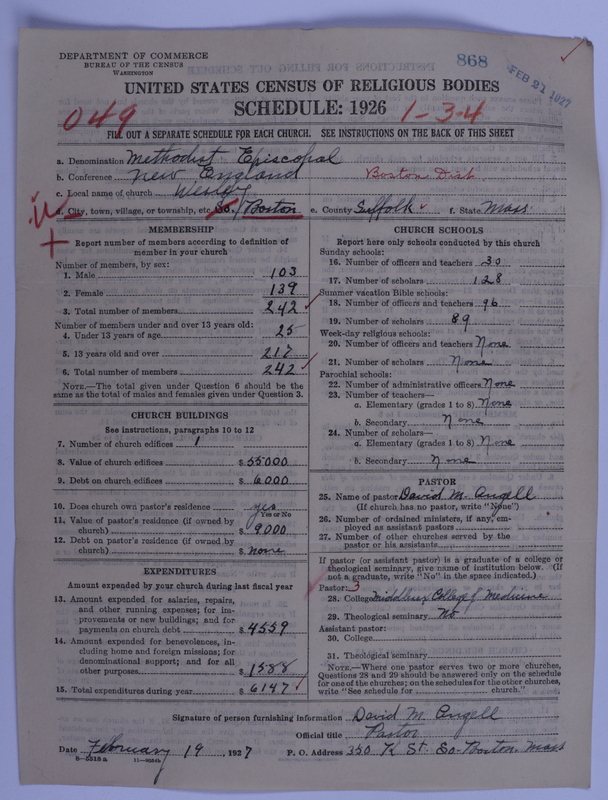 DEPARTMENT OF COMMERCE
BUREAU OF THE CENSUS
WASHINGTON
868
FEB 21 1927
UNITED STATES CENSUS OF RELIGIOUS BODIES
SCHEDULE: 1926
049
1-3-4
FILL OUT A SEPARATE SCHEDULE FOR EACH CHURCH. SEE INSTRUCTIONS ON THE BACK OF THIS SHEET
a. Denomination Methodist Episcopal
b. Conference New England Boston Dist
c. Local name of church Wesley
d. City, town, village, or township, etc. So. Boston e. County Suffolk f. State Mass.
MEMBERSHIP
Report number of members according to definition of
member in your church
Number of members, by sex:
1. Male 103
2. Female 139
3. Total number of members 242
Number of members under and over 13 years old:
4. Under 13 years of age 25
5. 13 years old and over 217
6. Total number of members 242
NOTE.—The total given under Question 6 should be the
same as the total of males and females given under Question 3.
CHURCH BUILDINGS
See instructions, paragraphs 10 to 12
7. Number of church edifices 1
8. Value of church edifices $ 55000
9. Debt on church edifices $ 6000
10. Does church own pastor's residence yes
Yes or No
11. Value of pastor's residence (if owned by
church) $ 9000
12. Debt on pastor's residence (if owned by
church) $ none
EXPENDITURES
Amount expended by your church during last fiscal year
13. Amount expended for salaries, repairs,
and other running expense; for im-
provements or new buildings; and for
payments on church debt $ 4559
14. Amount expended for benevolences, in-
cluding home and foreign missions; for
denominational support; and for all
other purposes $ 1588
15. Total expenditures during year $ 6147
CHURCH SCHOOLS
Report here only schools conducted by this church
Sunday schools:
16. Number of officers and teachers 30
17. Number of scholars 128
Summer vacation Bible schools:
18. Number of officers and teachers 96
19. Number of scholars 89
Week-day religious schools:
20. Number of officers and teachers None
21. Number of scholars None
Parochial schools:
22. Number of administrative officers None
23. Number of teachers—
a. Elementary (grades 1 to 8) None
b. Secondary None
24. Number of scholars—
a. Elementary (grades 1 to 8) None
b. Secondary None
PASTOR
25. Name of pastor David M. Angell
(If church has no pastor, write "None")
26. Number of ordained ministers, if any, em-
ployed as assistant pastors
27. Number of other churches served by the
pastor or his assistants
If pastor (or assistant pastor) is a graduate of a college or
theological seminary, give name of institution below. (If
not a graduate, write "No" in the space indicated.)
Pastor: 3
28. College Middlesex College of Medicine
29. Theological seminary No
Assistant pastor:
30. College
31. Theological seminary
NOTE.—Where one pastor serves two or more churches,
Questions 28 and 29 should be answered only on the schedule
for one of the churches; on the schedules for the other churches,
write "See schedule for church."
Signature of person furnishing information David M. Angell
Official title Pastor
Date February 19, 1927 P. O. Address 350 K St. So-Boston. Mass
8—5318a